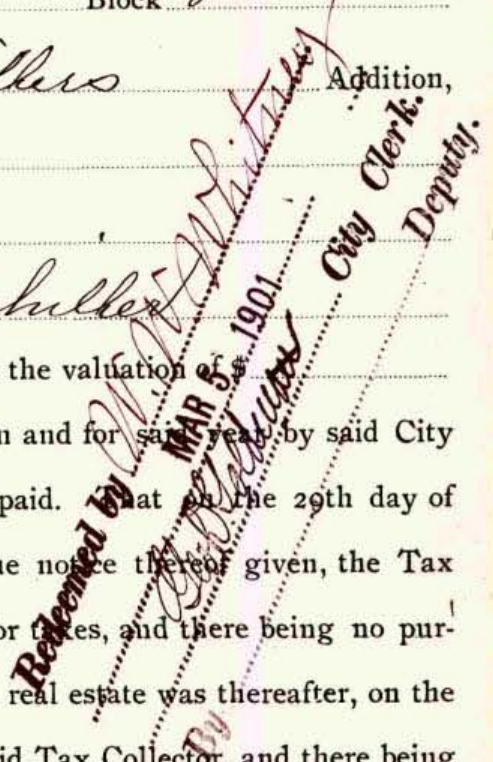 Block
Addition,
the valuation of $
n and for said year by said City
paid. That on the 29th day of
ue notice thereof given, the Tax
or taxes, and there being no pur-
real estate was thereafter, on the
id Tax Collector, and there being
Redeemed by W. W. Whitney
MAR 5 1901
City Clerk.
By Deputy.